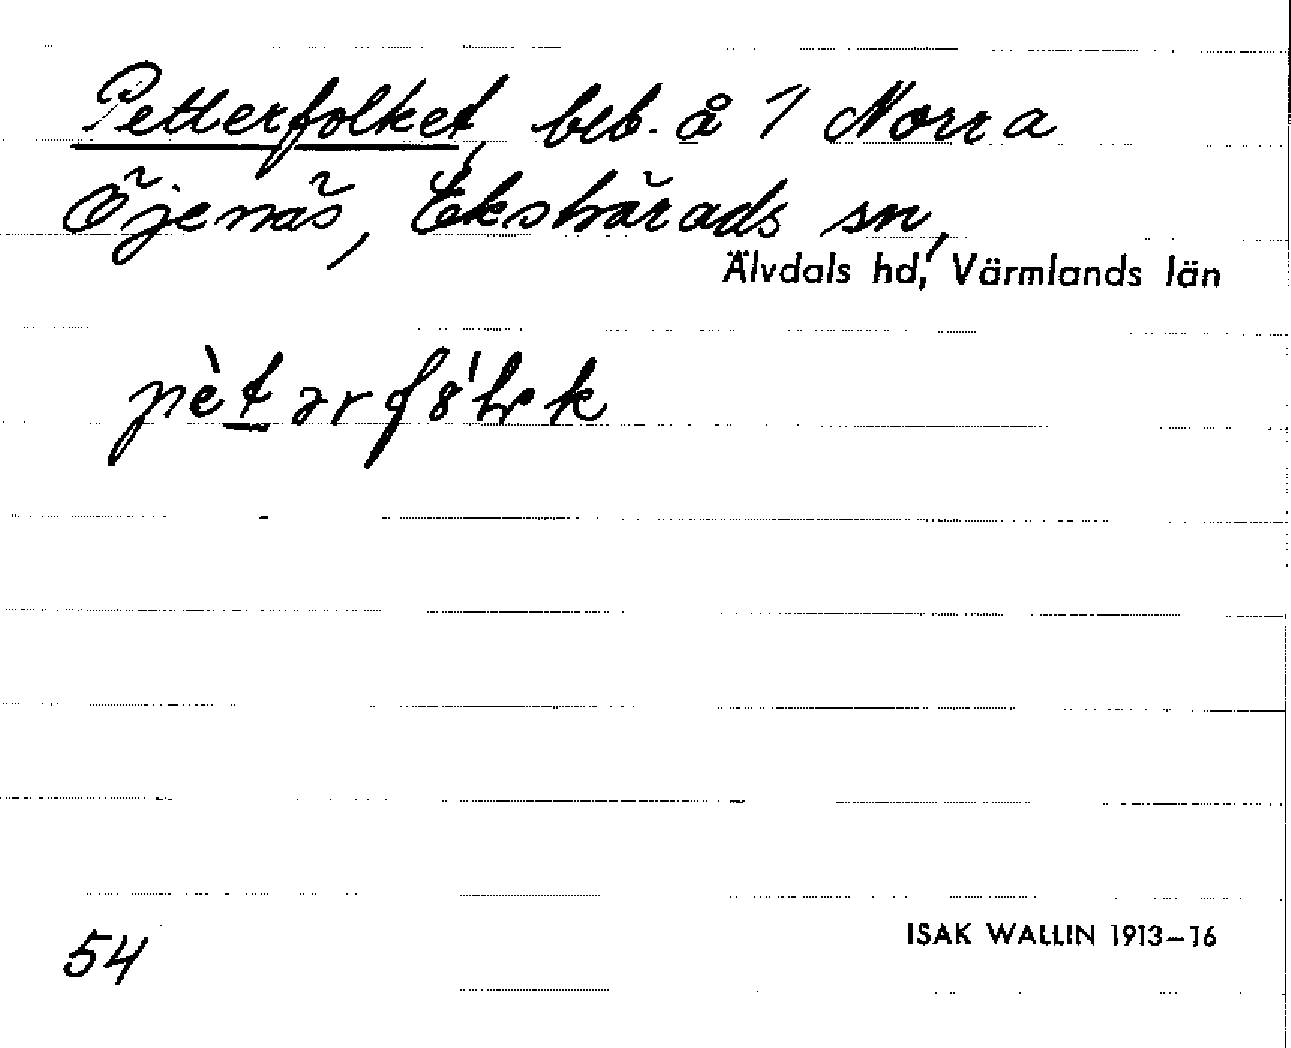 Petterfolket, beb. å 1/ Norra
Öjenäs, Ekshärads sn,
Älvdals hd, Värmlands län
54
ISAK WALLIN 1913–16